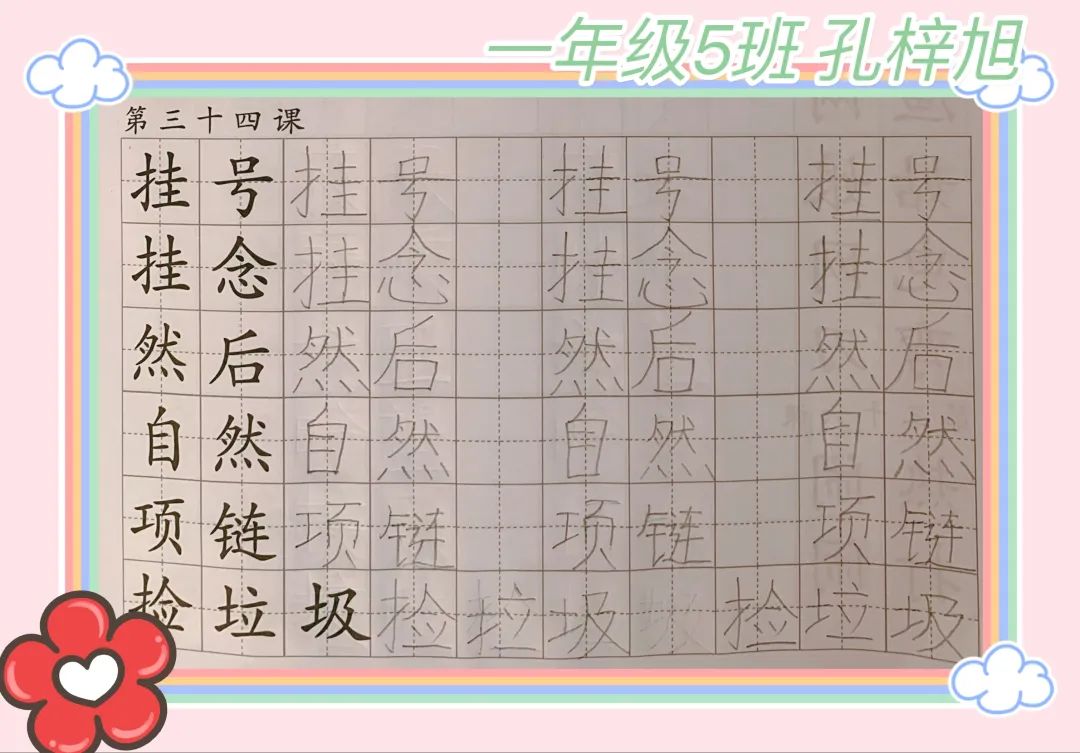 一年级5班 孔梓旭
第三十四课
挂号挂号 挂号 挂号
挂念挂念 挂念 挂念
然后然后 然后 然后
自然自然 自然 自然
项链项链 项链 项链
捡垃圾捡垃圾 捡垃圾